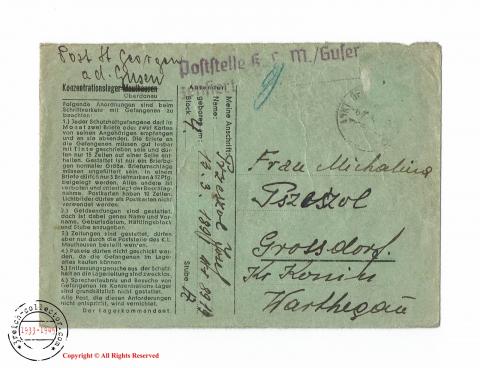 Post St Georgen
a.d. Gusen
Poststelle K. L. M./Gusen
Konzentrationslager Mauthausen
Oberdonau
Folgende Anordnungen sind beim
Schriftverkehr mit Gefangenen zu
beachten:
1.) Jeder Schutzhaftgefangene darf in
Monat zwei Briefe oder zwei Karten
von seinen Angehörigen empfangen
und an sie absenden. Die Briefe an
die Gefangenen müssen gut lesbar
mit Tinte geschrieben sein und dür-
fen nur 15 Zeilen auf einer Seite ent-
halten. Gestattet ist nur ein Briefbo-
gen normaler Größe. Briefumschläge
müssen ungefüttert sein. In einem
Briefe dürfen nur 5 Briefmarken à 12 Pfg.
beigelegt werden. Alles andere ist
verboten und unterliegt der Beschlag-
nahme. Postkarten haben 10 Zeilen.
Lichtbilder dürfen als Postkarten nicht
verwendet werden.
2.) Geldsendungen sind gestattet,
doch ist dabei genau Name und Vor-
name, Geburtsdatum, Häftlingsblock
und Stube anzugeben.
3.) Zeitungen sind gestattet, dürfen
aber nur durch die Poststelle des K.L.
Mauthausen bestellt werden.
4.) Pakete dürfen nicht geschickt wer-
den, da die Gefangenen im Lager
alles kaufen können.
5.) Entlassungsgesuche aus der Schutz-
haft an die Lagerleitung sind zwecklos.
6.) Sprecherlaubnis und Besuche von
Gefangenen im Konzentrations-Lager
sind grundsätzlich nicht gestattet.
Alle Post, die diesen Anforderungen
nicht entspricht, wird vernichtet.
Der Lagerkommandant.
Meine Anschrift:
Name:
geboren am:
Block 4
Stube B
Frau Michalina
Pszeszol
Grossdorf
Kr Konin
Warthegau
3reich-collector.com
1933-1945
Copyright © All Rights Reserved